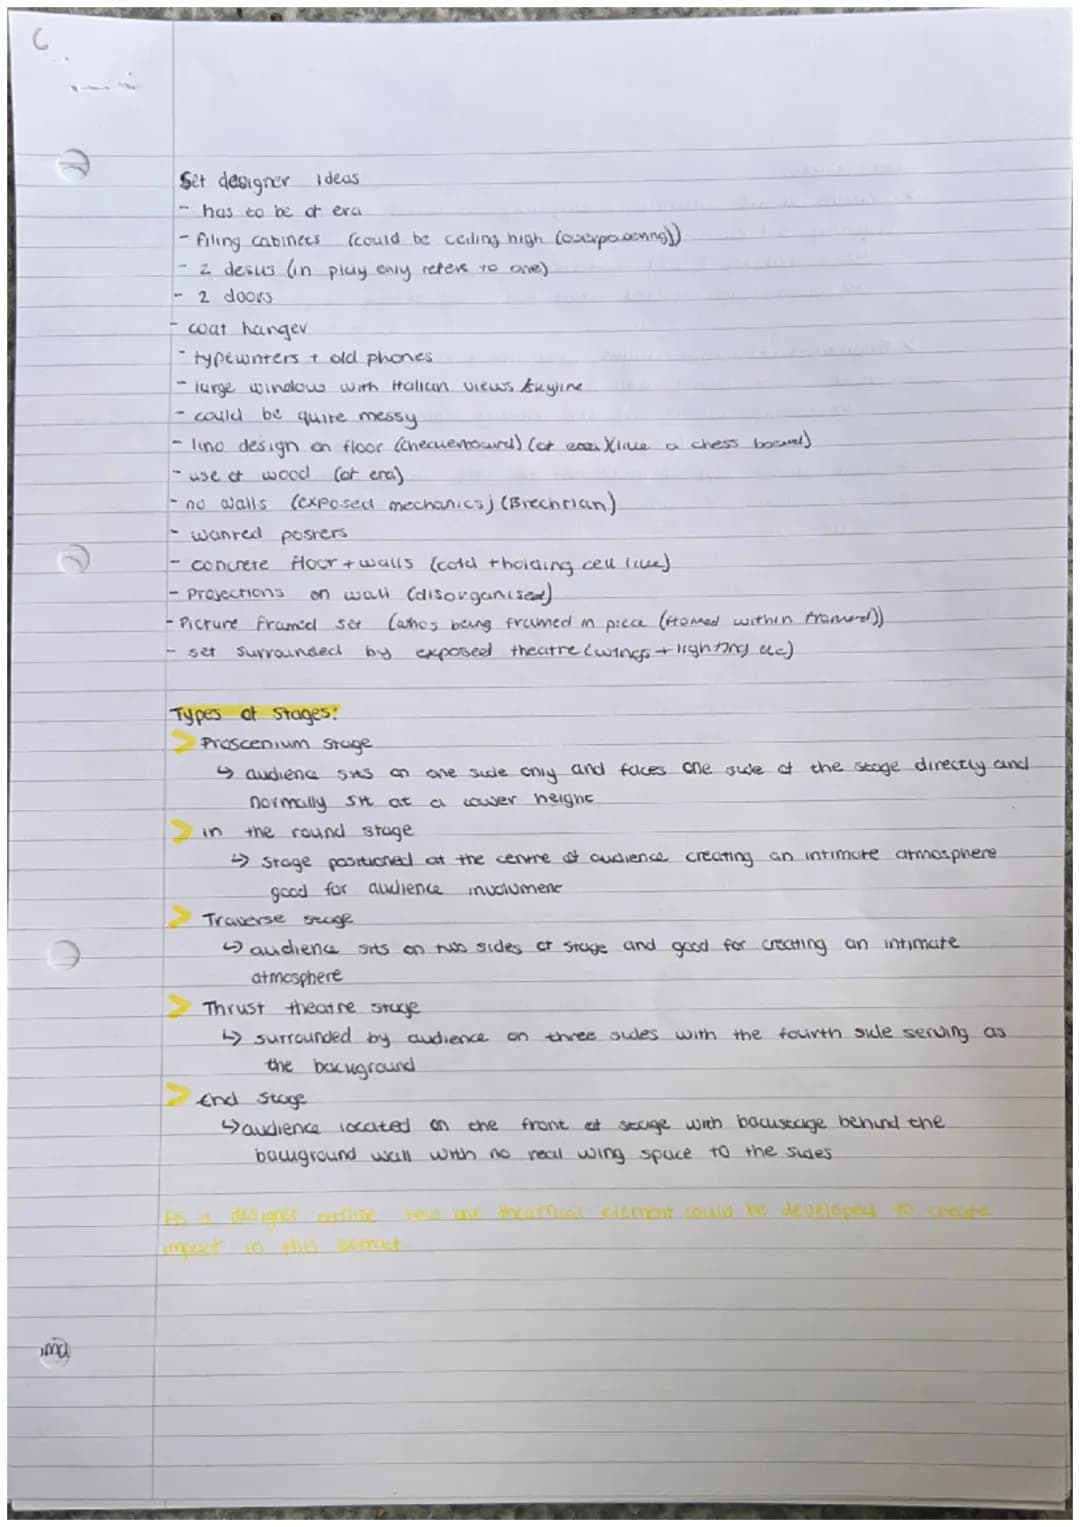 Set designer ideas
- has to be of era
- filing cabinets (could be ceiling high (overpowering))
- 2 desks (in play only refers to one)
- 2 doors
- coat hanger
- typewriters + old phones
- large window with Italian views skyline
- could be quite messy
- lino design on floor (checkerboard) (of era)(like a chess board)
- use of wood (of era)
- no walls (exposed mechanics) (Brechtian)
- wanted posters
- concrete floor + walls (cold + holding cell like)
- Projections on wall (disorganised)
- Picture framed set (whos being framed in piece (framed within framed))
- set surrounded by exposed theatre (wings + lighting etc)
Types of Stages:
> Proscenium stage
↳ audience sits on one side only and faces one side of the stage directly and
normally sit at a lower height
> in the round stage
↳ Stage positioned at the centre of audience creating an intimate atmosphere
good for audience involvment
> Traverse stage
↳ audience sits on two sides of stage and good for creating an intimate
atmosphere
> Thrust theatre stage
↳ surrounded by audience on three sides with the fourth side serving as
the background
> End stage
↳ audience located on the front of stage with backstage behind the
background wall with no real wing space to the sides
As a designer outline how one theatrical element could be developed to create
impact in this extract